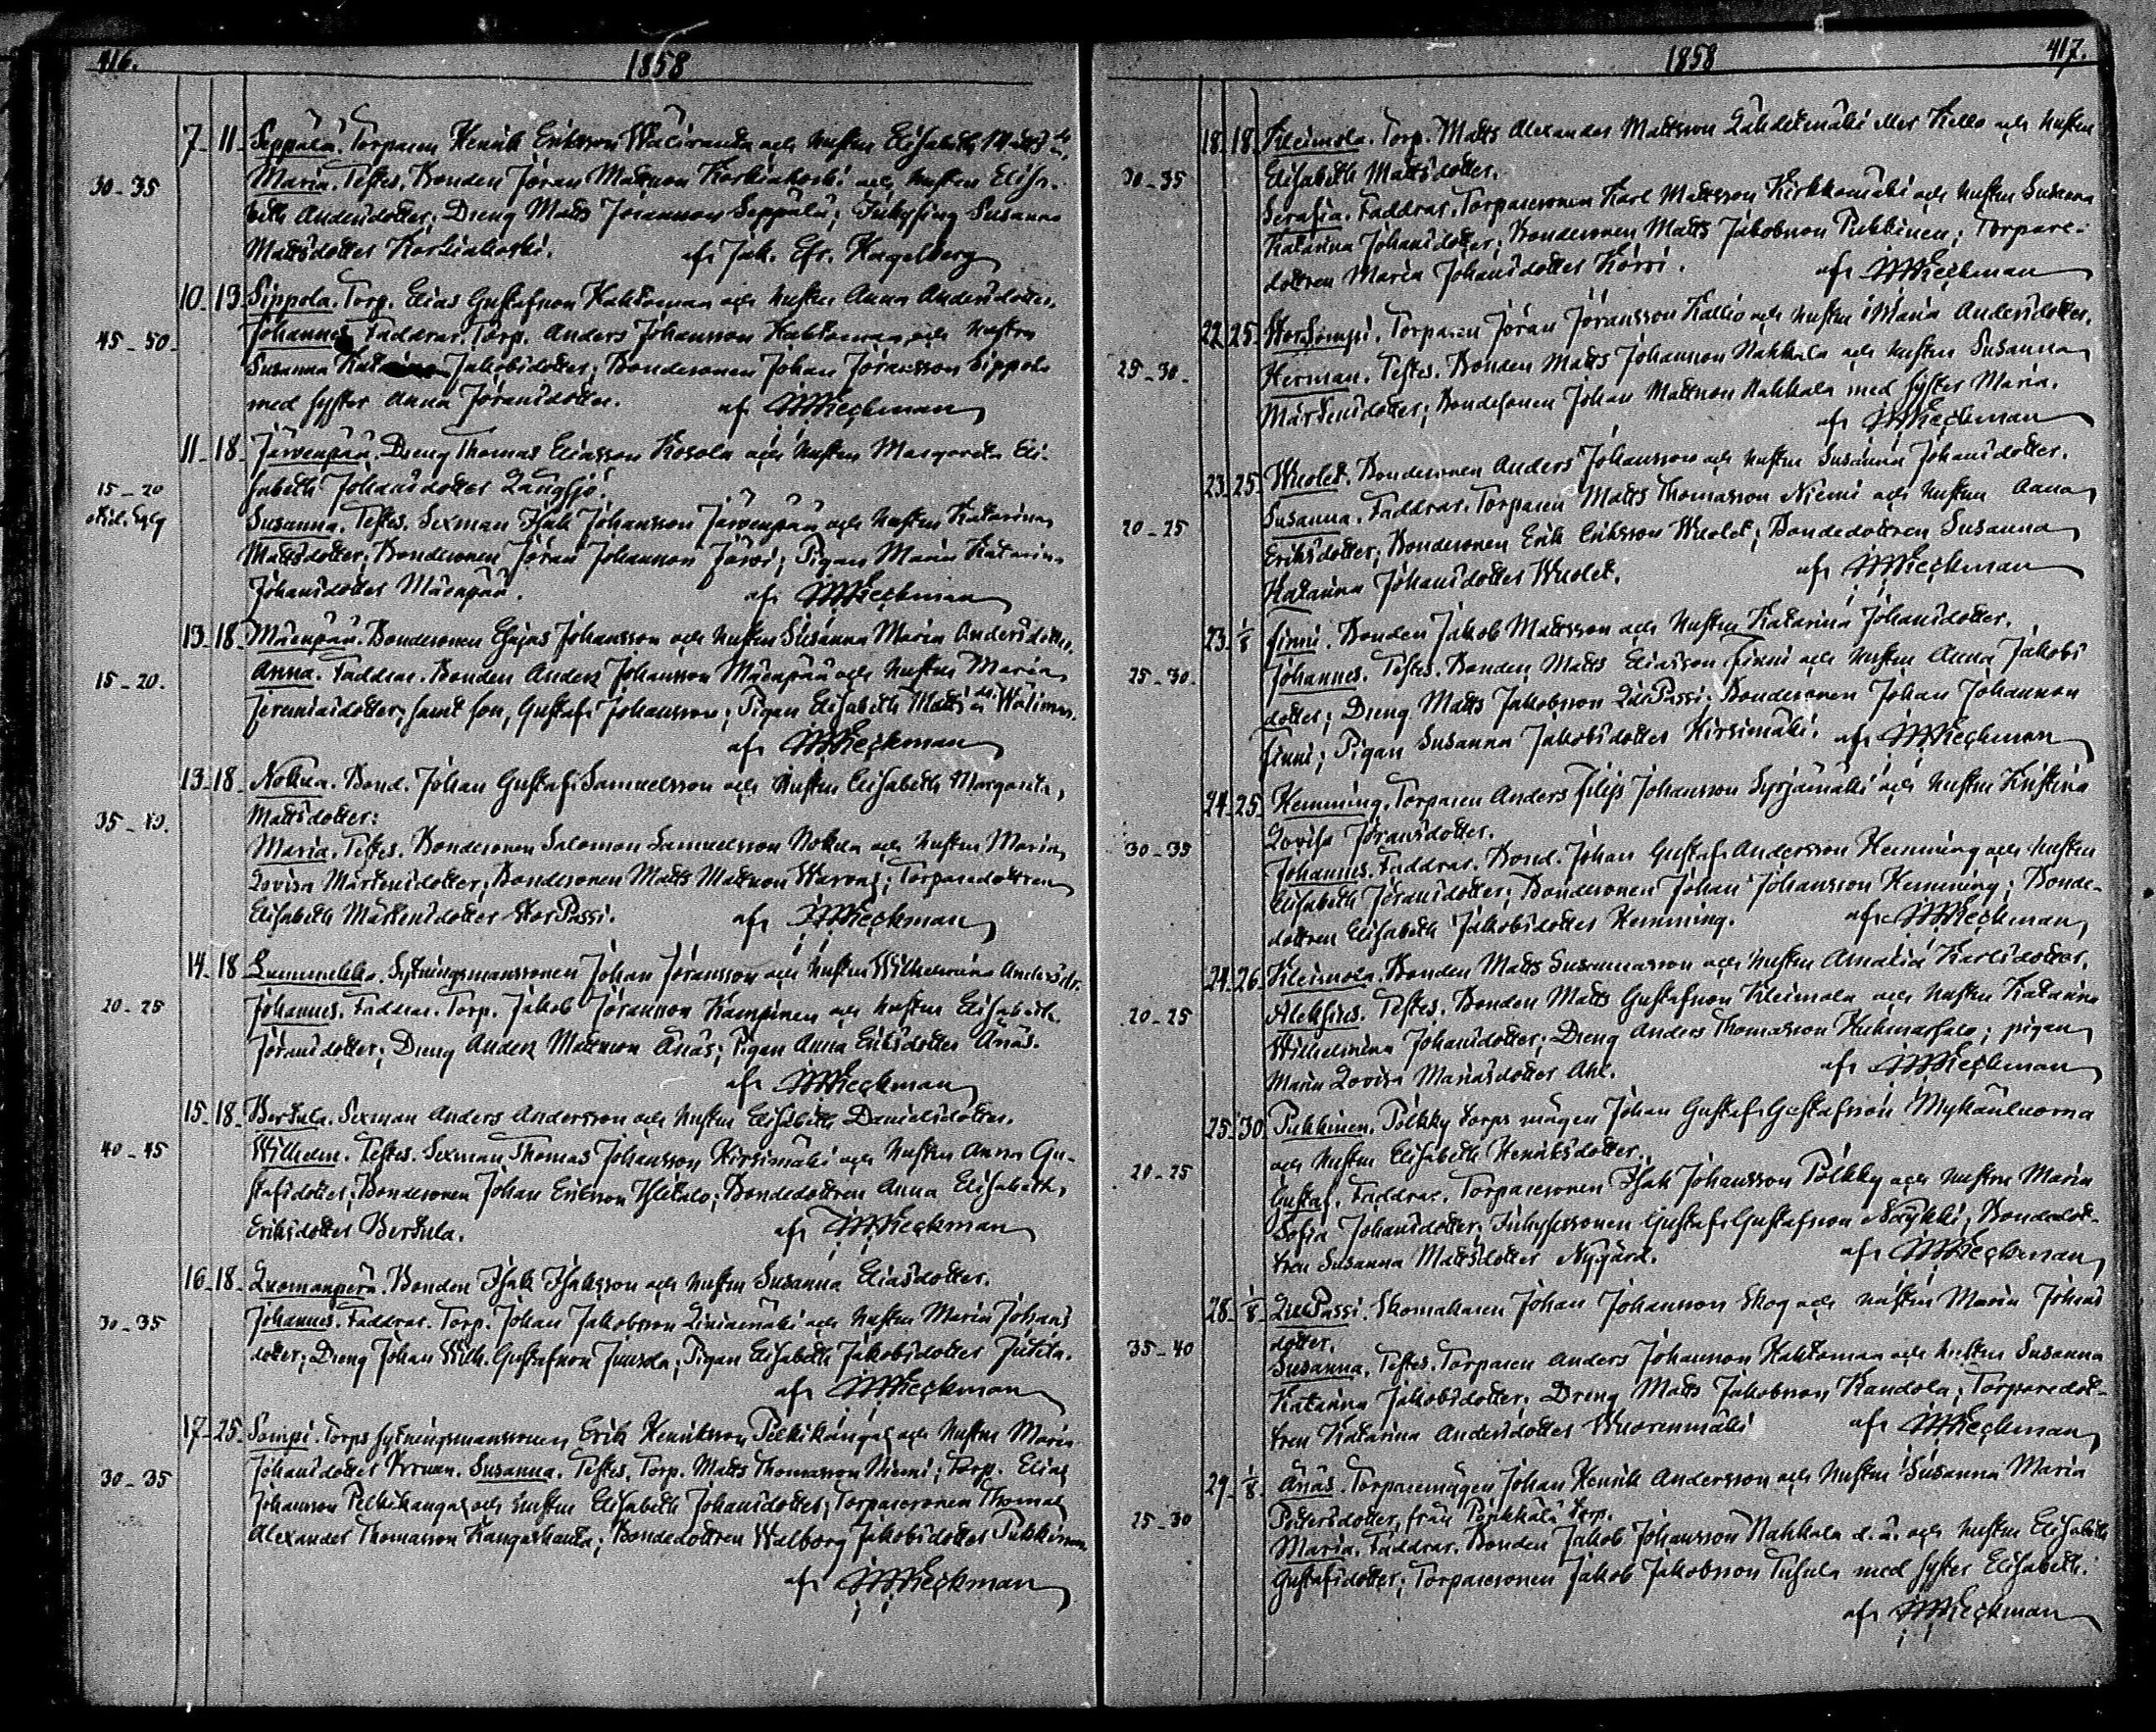 416.
1858
7 11 Seppälä. Torparen Henrik Eriksson Waliranta och hustrun Elisabeth Matts dr.
30-35 Maria. Testes. Bonden Jöran Mattsson Korkiakoski och hustrun Elisa-
beth Andersdotter; Dreng Matts Jöransson Seppälä; Inhysing Susanna
Mattsdotter Korkiakoski. af Jak. Efr. Hagelberg
10 13 Sippola. Torp. Elias Gustafsson Hahtomaa och hustrun Anna Andersdotter.
45-50 Johannes. Faddrar. Torp. Anders Johansson Hahtomaa och hustrun
Susanna Katarina Jakobsdotter; Bondesonen Johan Jöransson Sippola
med syster Anna Jöransdotter. af Wieckman
11 18 Järvenpää. Dreng Thomas Eliasson Kosola och hustrun Margareta Eli-
15-20 sabeth Johansdotter Långsjö.
Susanna. Testes. Sexman Isak Johansson Järvenpää och hustrun Katarina
Mattsdotter; Bondesonen Jöran Johansson Järvi; Pigan Maria Katarina
Johansdotter Mäenpää. af Wieckman
13 18 Mäenpää. Bondesonen Esaias Johansson och hustrun Susanna Maria Andersdotter.
15-20. Anna. Faddrar. Bonden Anders Johansson Mäenpää och hustrun Maria
Jeremiasdotter, samt son, Gustaf Johansson; Pigan Elisabeth Matts dr
af Wieckman
13 18 Nokua. Bond. Johan Gustaf Samuelsson och hustrun Elisabeth Margareta
35-40. Mattsdotter:
Maria. Testes. Bondesonen Salomon Samuelsson Nokua och hustrun Maria
Lovisa Mårtensdotter; Bondesonen Matts Mattsson; Torparedottren
Elisabeth Mårtensdotter StorPassi. af Wieckman
14 18 Lummukka. Sytningsmanssonen Johan Jöransson och hustrun Wilhelmina Andersdr.
20-25 Johannes. Faddrar. Torp. Jakob Jöransson Kampinen och hustrun Elisabeth
Jöransdotter; Dreng Anders Mattsson Änäs; Pigan Anna Eriksdotter Änäs.
af Wieckman
15 18 Bertula. Sexman Anders Andersson och hustrun Elisabeth Danielsdotter.
40-45 Wilhelm. Testes. Sexman Thomas Johansson Hirsimäki och hustrun Anna Gu-
stafsdotter; Bondesonen Johan Eriksson Ylitalo; Bondedottren Anna Elisabeth
Eriksdotter Bertula. af Wieckman
16 18 Luomanperä. Bonden Isak Isaksson och hustrun Susanna Eliasdotter.
30-35 Johannes. Faddrar. Torp. Johan Jakobsson Liniamäki och hustrun Maria Johans
dotter; Dreng Johan Wilh. Gustafsson Juusela; Pigan Elisabeth Jakobsdotter Jutila.
af Wieckman
17 25 Sompi. Torps sytningsmanssonen Erik Henriksson Pelkikangas och hustrun Maria
30-35 Johansdotter. Susanna. Testes. Torp. Matts Thomasson Niemi; Torp. Elias
Johansson Pelkikangas och hustrun Elisabeth Johansdotter; Torparesonen Thomas
Alexander Thomasson Kangashauta; Bondedottren Walborg Jakobsdotter Pukkinen.
af Wieckman
1858
417.
18 18 Kleimola. Torp. Matts Alexander Mattsson Lähdetmäki eller Kello och hustrun
30-35 Elisabeth Mattsdotter.
Serafia. Faddrar. Torparesonen Karl Mattsson Kirkkomäki och hustrun Susanna
Katarina Johansdotter; Bondesonen Matts Jakobsson Pukkinen; Torpare-
dottren Maria Johansdotter Körri. af Wieckman
22 25 StorSompi. Torparen Jöran Jöransson Kallio och hustrun Maria Andersdotter.
25-30. Herman. Testes. Bonden Matts Johansson Nahkala och hustrun Susanna
Mårtensdotter; Bondesonen Johan Mattsson Nahkala med syster Maria.
af Wieckman
23 25 Wuolet. Bondesonen Anders Johansson och hustrun Susanna Johansdotter.
20-25 Susanna. Faddrar. Torparen Matts Thomasson Niemi och hustrun Anna
Eriksdotter; Bondesonen Erik Eriksson Wuolet; Bondedottren Susanna
Katarina Johansdotter Wuolet. af Wieckman
23 1/8 Finni. Bonden Jakob Mattsson och hustrun Katarina Johansdotter.
25-30. Johannes. Testes. Bonden Matts Eliasson Finni och hustrun Anna Jakobs
dotter; Dreng Matts Jakobsson LillPassi; Bondesonen Johan Johansson
Finni; Pigan Susanna Jakobsdotter Hirsimäki. af Wieckman
24 25 Hemming. Torparen Anders Filip Johansson Syrjämäki och hustrun Kristina
30-35 Lovisa Jöransdotter.
Johannes. Faddrar. Bond. Johan Gustaf Andersson Hemming och hustrun
Elisabeth Jöransdotter; Bondesonen Johan Johansson Hemming; Bonde-
dottren Elisabeth Jakobsdotter Hemming. af Wieckman
24 26 Kleimola. Bonden Matts Susannasson och hustrun Amalia Karlsdotter.
20-25 Aleksius. Testes. Bonden Matts Gustafsson Kleimola och hustrun Katarina
Wilhelmina Johansdotter; Dreng Anders Thomasson Kuhmasalo; pigan
Maria Lovisa Mariasdotter Ahl. af Wieckman
25 30 Pukkinen. Pölkky torps mågen Johan Gustaf Gustafsson Mykänluoma
och hustrun Elisabeth Henriksdotter.
20-25 Gustaf. Faddrar. Torparesonen Isak Johansson Pölkky och hustrun Maria
Sofia Johansdotter; Inhysessonen Gustaf Gustafsson Näykki; Bondedot-
tren Susanna Mattsdotter Nygård. af Wieckman
28 1/8 LillPassi. Skomakaren Johan Johansson Skog och hustrun Maria Johans
35-40 dotter.
Susanna. Testes. Torparen Anders Johansson Hahtomaa och hustrun Susanna
Katarina Jakobsdotter. Dreng Matts Jakobsson Kandola; Torparedot-
tren Katarina Andersdotter Wuorenmäki af Wieckman
29 1/8. Änäs. Torparemågen Johan Henrik Andersson och hustrun Susanna Maria
25-30 Petersdotter, från Pörkkälä torp.
Maria. Faddrar. Bonden Jakob Johansson Nahkala d. ä. och hustrun Elisabeth
Gustafsdotter; Torparesonen Jakob Jakobsson Tusula med syster Elisabeth.
af Wieckman